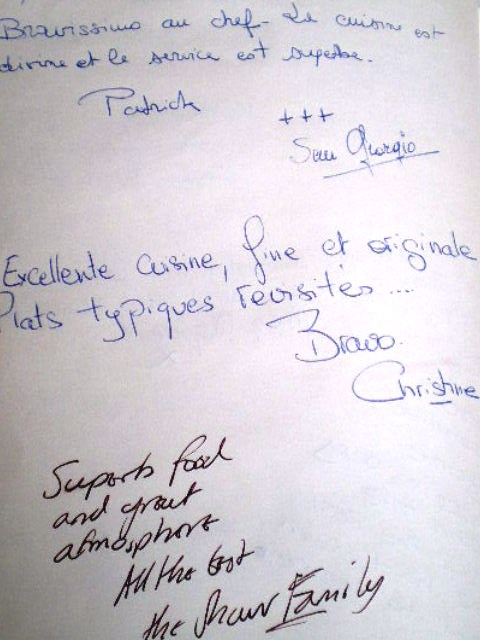 Bravissimo au chef. La cuisine est
divine et le service est superbe.
Patrick
+++
San Giorgio
Excellente cuisine, fine et originale
Plats typiques revisités ...
Bravo.
Christine
Superb food
and great
atmosphere
All the best
the Shaw Family